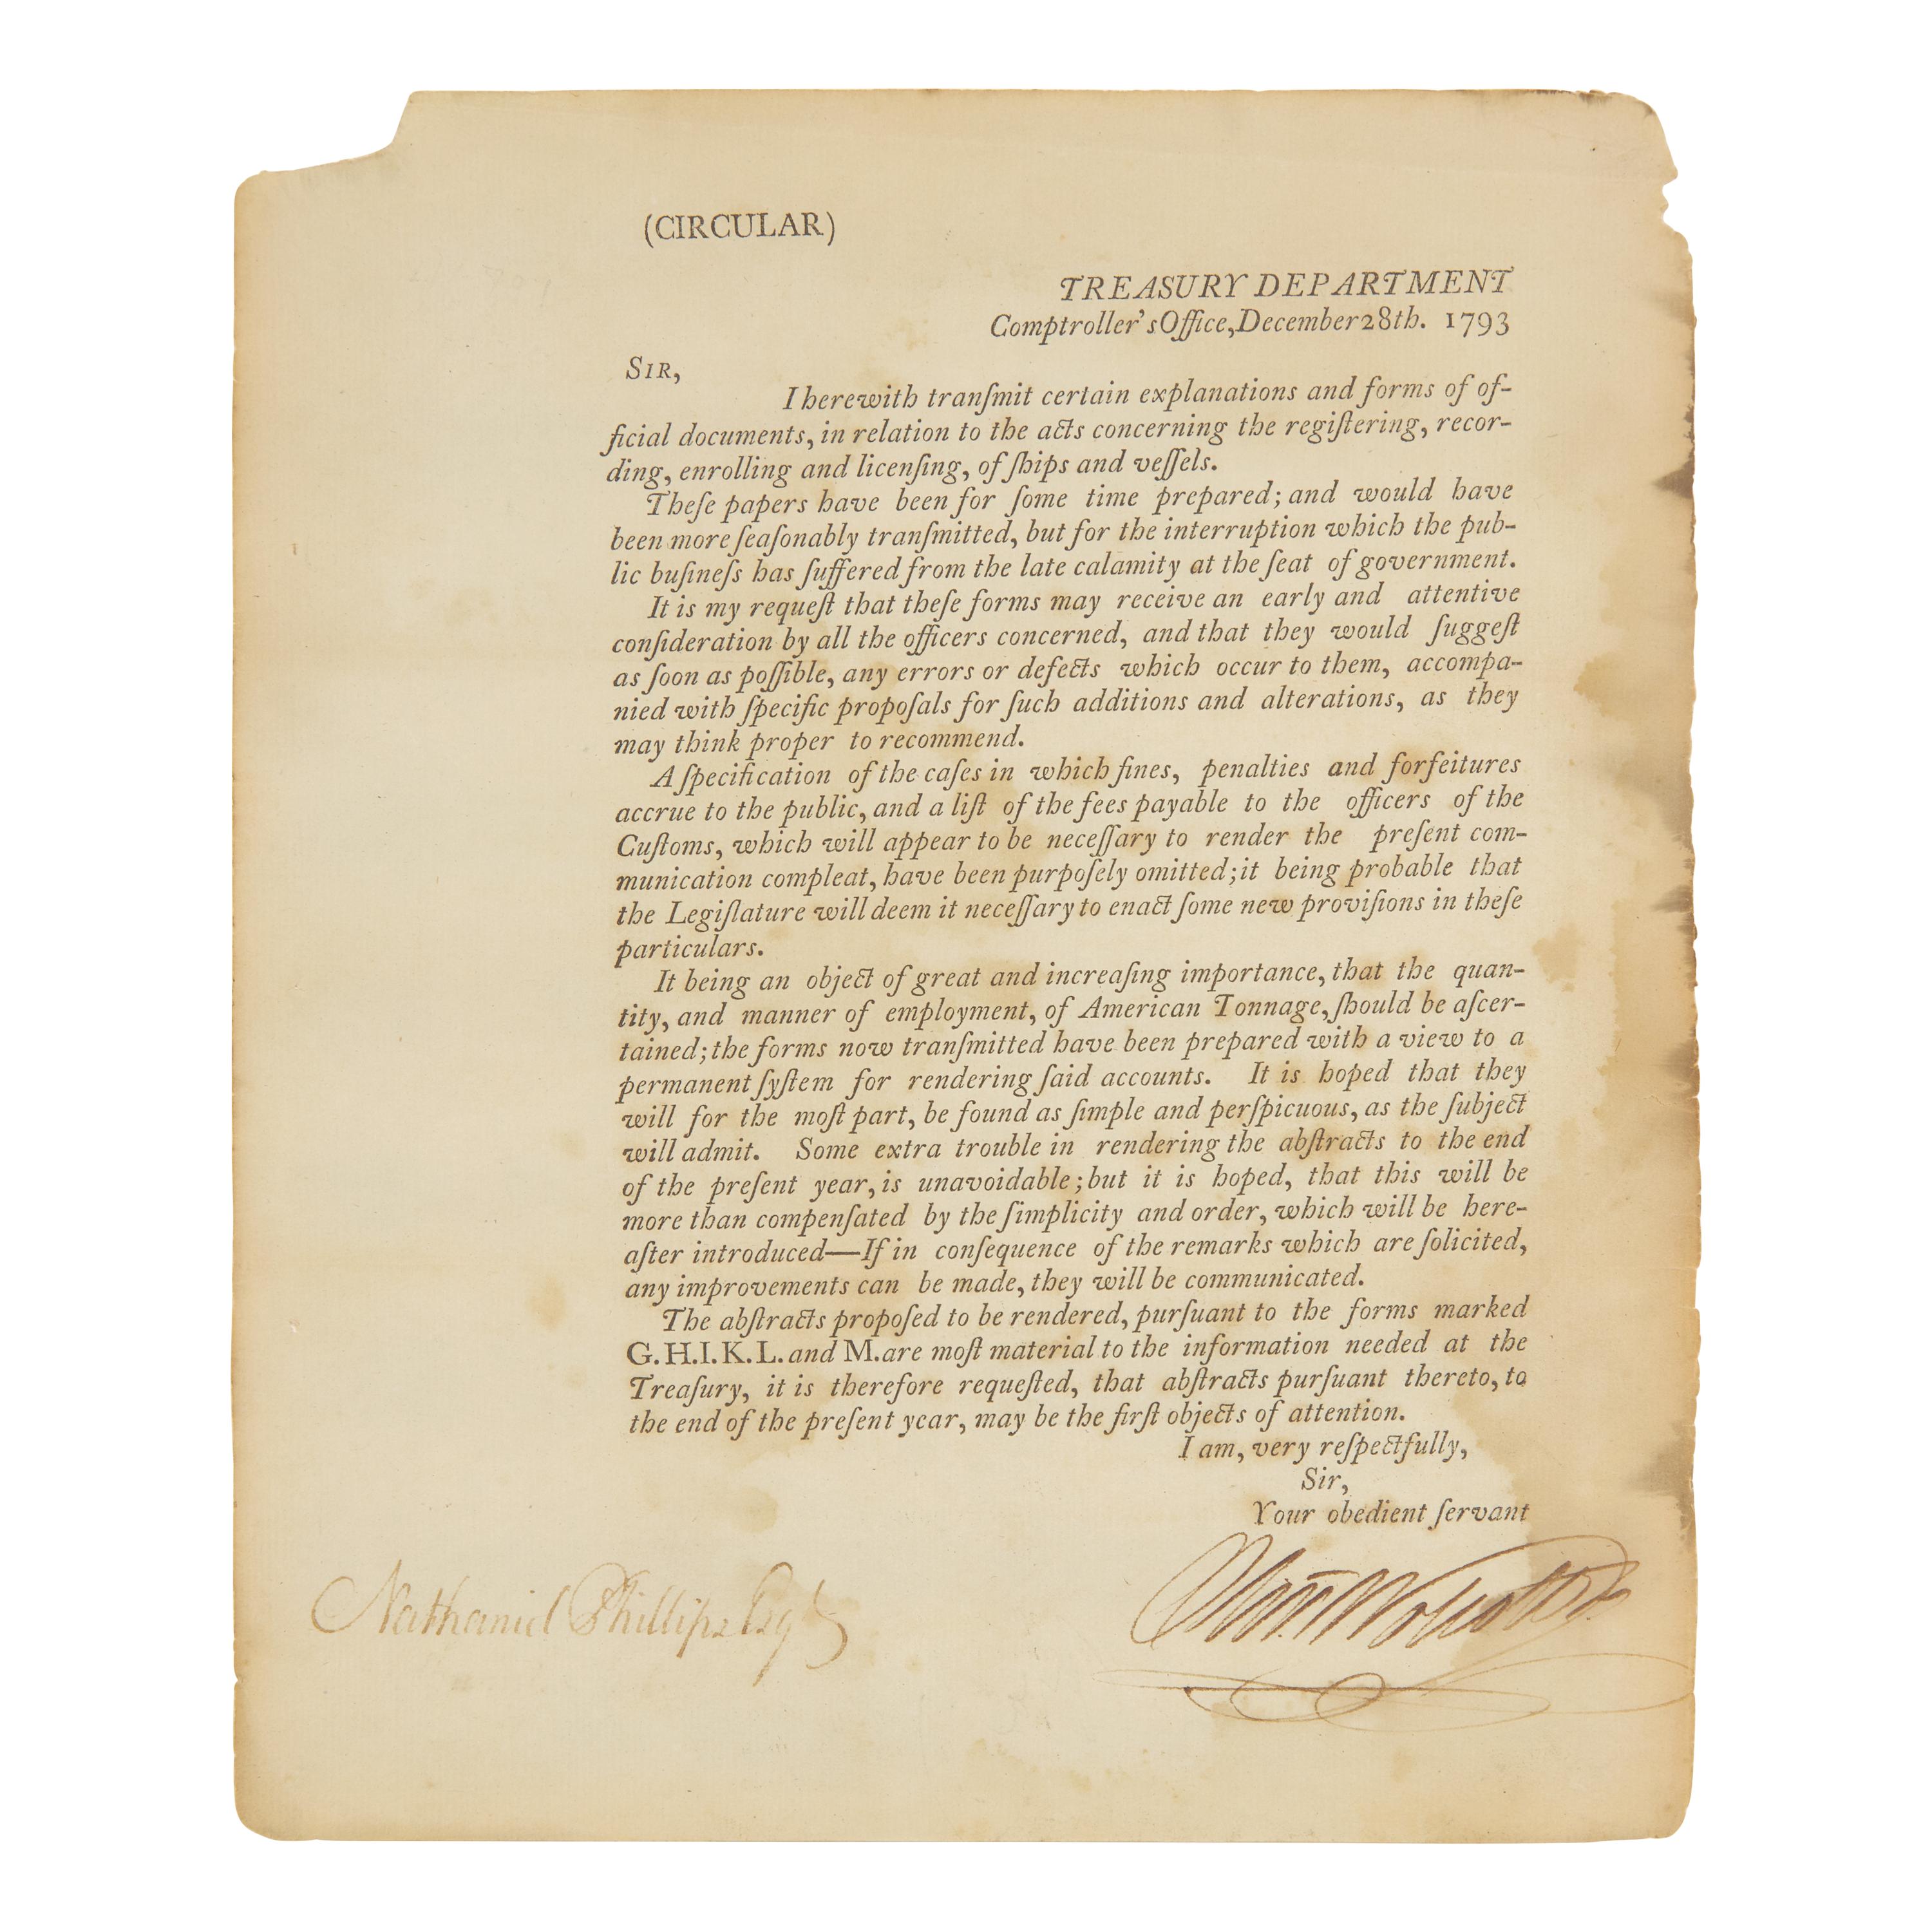 (CIRCULAR)
TREASURY DEPARTMENT
Comptroller's Office, December 28th. 1793
SIR,
I herewith tranſmit certain explanations and forms of of-
ficial documents, in relation to the acts concerning the regiſtering, recor-
ding, enrolling and licenſing, of ſhips and veſſels.
Theſe papers have been for ſome time prepared; and would have
been more ſeaſonably tranſmitted, but for the interruption which the pub-
lic buſineſs has ſuffered from the late calamity at the ſeat of government.
It is my requeſt that theſe forms may receive an early and attentive
conſideration by all the officers concerned, and that they would ſuggeſt
as ſoon as poſſible, any errors or defects which occur to them, accompa-
nied with ſpecific propoſals for ſuch additions and alterations, as they
may think proper to recommend.
A ſpecification of the caſes in which fines, penalties and forfeitures
accrue to the public, and a liſt of the fees payable to the officers of the
Cuſtoms, which will appear to be neceſſary to render the preſent com-
munication compleat, have been purpoſely omitted; it being probable that
the Legiſlature will deem it neceſſary to enact ſome new proviſions in theſe
particulars.
It being an object of great and increaſing importance, that the quan-
tity, and manner of employment, of American Tonnage, ſhould be aſcer-
tained; the forms now tranſmitted have been prepared with a view to a
permanent ſyſtem for rendering ſaid accounts. It is hoped that they
will for the moſt part, be found as ſimple and perſpicuous, as the ſubject
will admit. Some extra trouble in rendering the abſtracts to the end
of the preſent year, is unavoidable; but it is hoped, that this will be
more than compenſated by the ſimplicity and order, which will be here-
after introduced—If in conſequence of the remarks which are ſolicited,
any improvements can be made, they will be communicated.
The abſtracts propoſed to be rendered, purſuant to the forms marked
G. H. I. K. L. and M. are moſt material to the information needed at the
Treaſury, it is therefore requeſted, that abſtracts purſuant thereto, to
the end of the preſent year, may be the firſt objects of attention.
I am, very reſpectfully,
Sir,
Your obedient ſervant
Nathaniel Phillips Esqr
Olivr Wolcott Jr